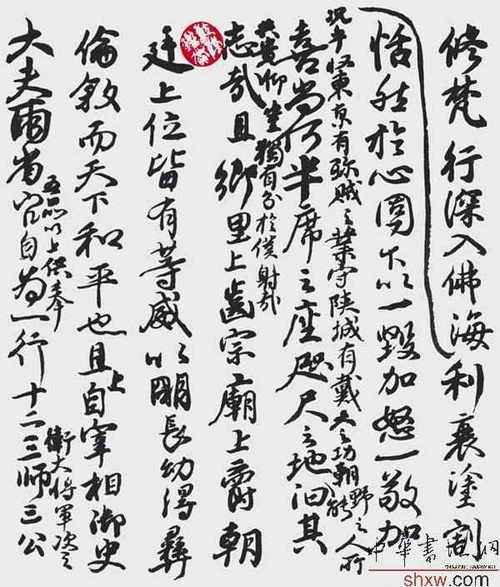 修梵行深入佛海利衰塗割
恬然於心固不以一毀加怒一敬加
況乎收東京有殄賊之業守陝城有戴天之功朝野之人所
喜尚何半席之座咫尺之地能汩其
共貴仰豈獨有分於僕射哉
志哉且鄉里上齒宗廟上爵朝
廷上位皆有等威以明長幼得彝
倫敘而天下和平也且上自宰相御史
五品以上供奉
衛大將軍次之
大夫兩省官自為一行十二三師三公
中華書法網
shxw.com